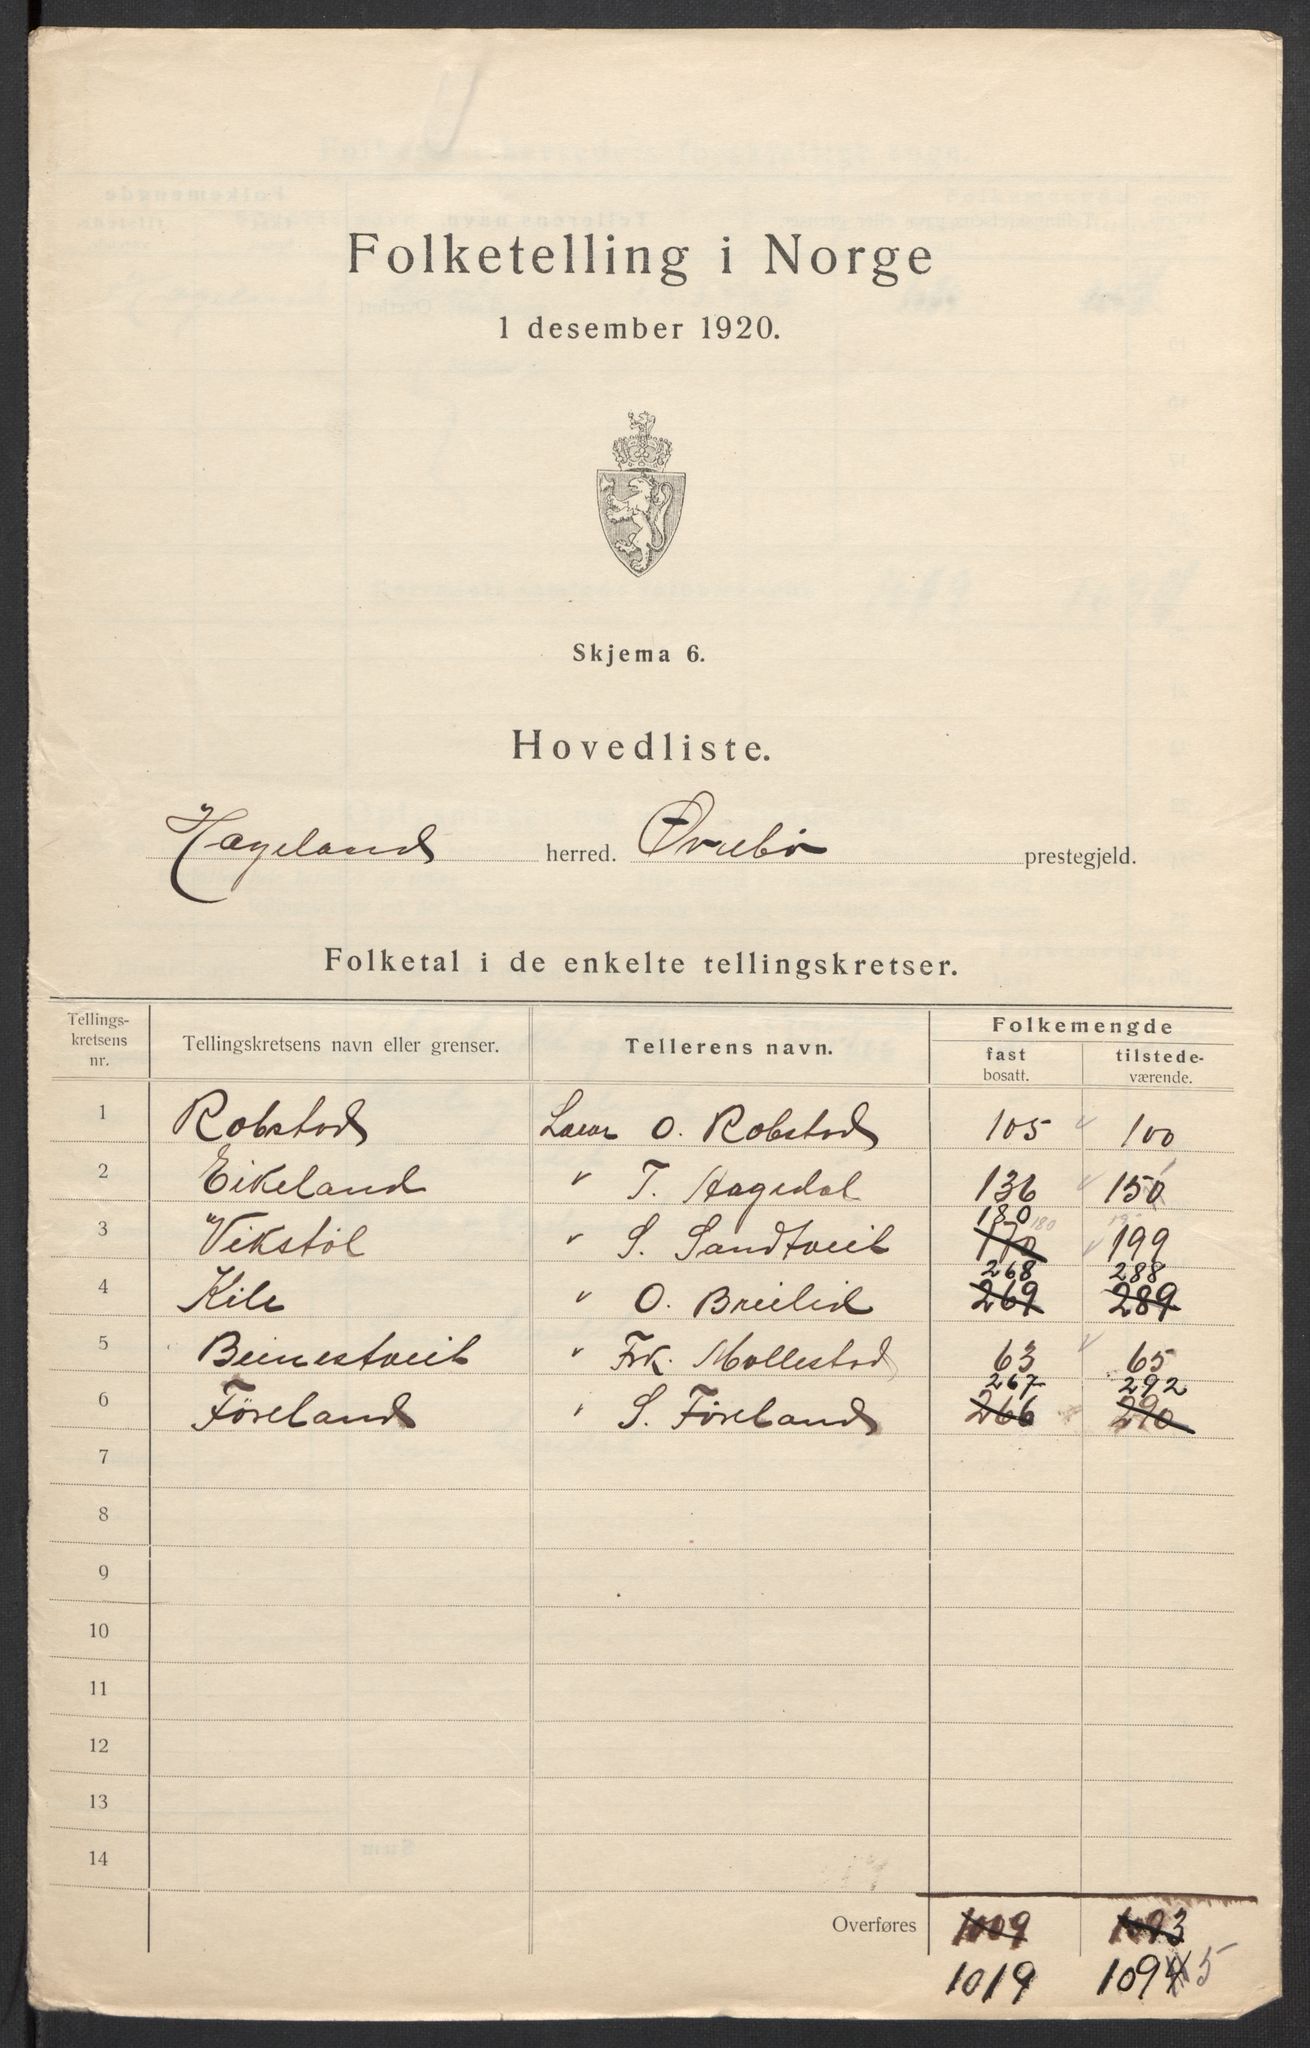 Folketelling i Norge
1 desember 1920.
Skjema 6.
Hovedliste.
Hægeland herred. Øvrebø prestegjeld.
Folketal i de enkelte tellingskretser.
Tellings-kretsens nr. Tellingskretsens navn eller grenser. Tellerens navn. Folkemengde
fast bosatt. tilstede-værende.
1 Robstad Lærer O. Robstad 105 100
2 Eikeland " T. Hagedal 136 150
180
3 Vikstøl " S. Sandtveit 170 180 199
268 288
4 Kile " O. Breilid 269 289
5 Beinestveit " Frk. Mollestad 63 65
267 292
6 Föreland " S. Föreland 266 290
7
8
9
10
11
12
13
14
Overføres 1009 1093
1019 1094 5